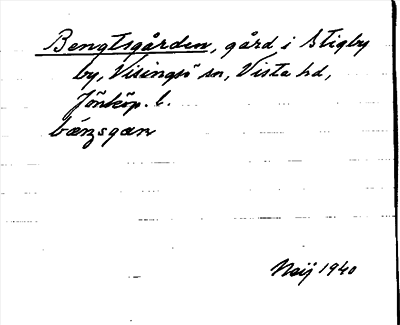 Bengtsgården, gård i Stigby
by, Visingsö sn, Vista hd,
Jönköp. l.
bénsgan
Maij 1940